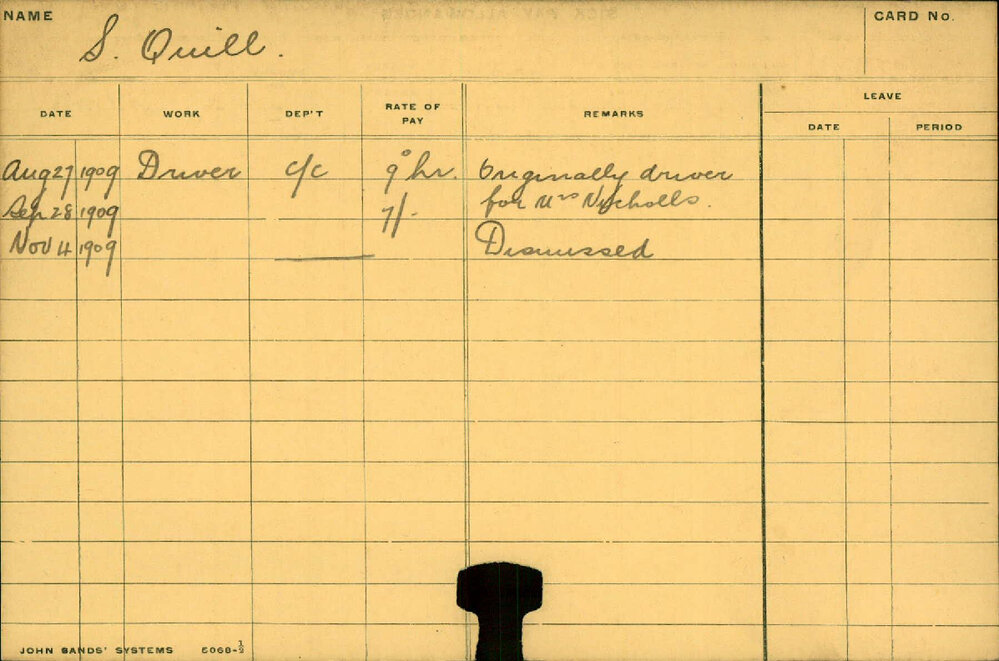 NAME
S. Quill.
CARD No.
DATE WORK DEP'T RATE OF PAY REMARKS LEAVE
DATE PERIOD
Aug 27 1909 Driver c/c 9° hr. Originally driver
Sep 28 1909 7/- for Mrs Nicholls.
Nov 4 1909 Dismissed
JOHN SANDS' SYSTEMS 5068-½